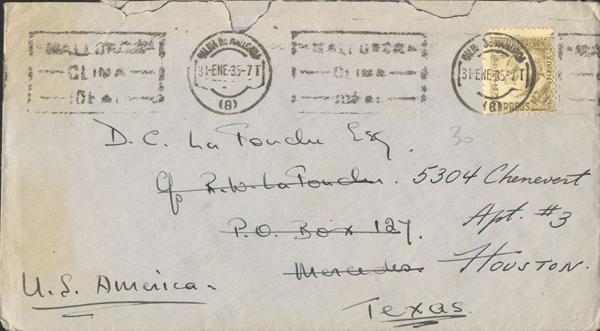 MALLORCA CLIMA IDEAL
PALMA DE MALLORCA
31-ENE-35-7T
(8)
MALLORCA CLIMA IDEAL
31-ENE-35-7T
(8)
CORREOS
30
D. C. La Touche Esq.
c/o R. W. La Touche. 5304 Chenevert
P.O. Box 127. Apt. #3
Mercedes. HOUSTON.
U.S. America. Texas.